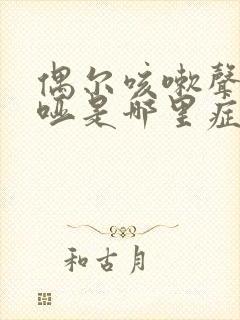 偶尔咳嗽聲
哑是哪里症
和古月